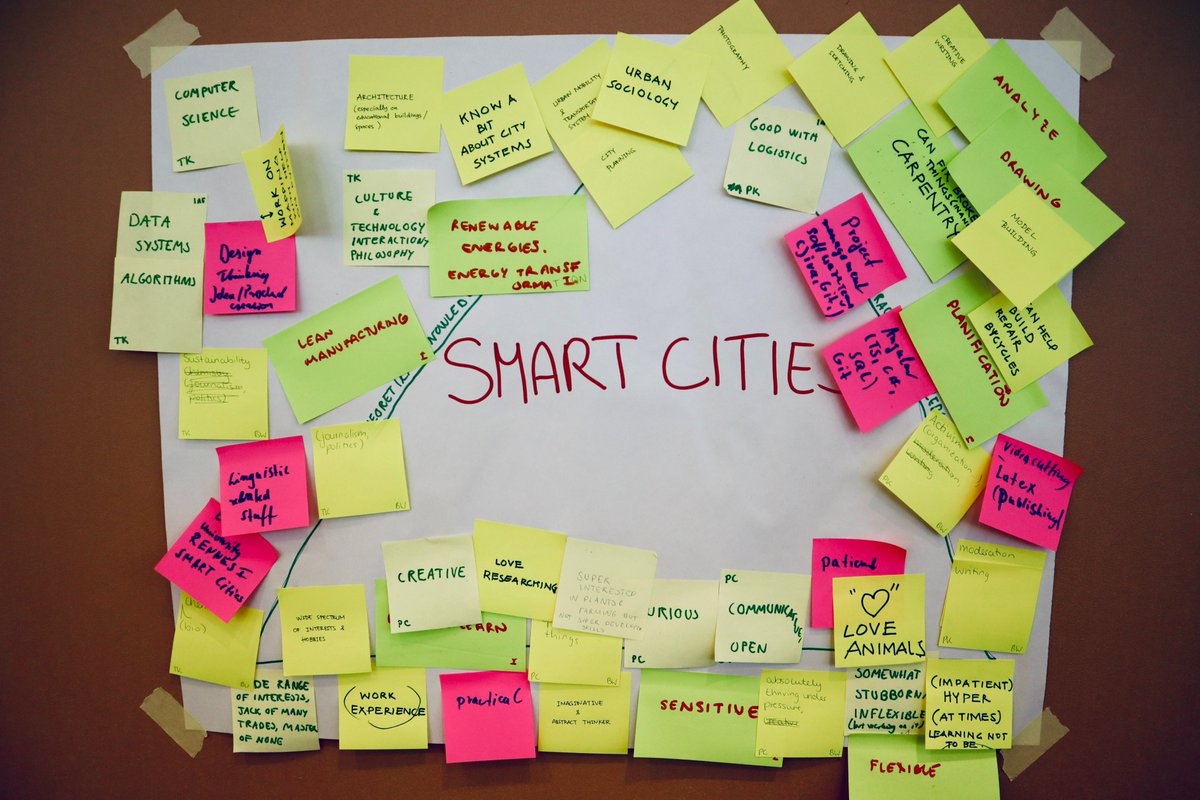 COMPUTER
SCIENCE
TK
WORK ON
ARCHITECTURE
(especially on
educational buildings/
spaces)
KNOW A
BIT
ABOUT CITY
SYSTEMS
URBAN MOBILITY
&
TRANSPORTATION
SYSTEM
URBAN
SOCIOLOGY
CITY
PLANNING
PHOTOGRAPHY
DRAWING &
SKETCHING
CREATIVE
WRITING
ANALYZE
GOOD WITH
LOGISTICS
PK
CAN FIX BROKEN
THINGS
CARPENTRY
DRAWING
MODEL
BUILDING
DATA
SYSTEMS
ALGORITHMS
TK
Design
Thinking
Idea/Product
creation
TK
CULTURE
&
TECHNOLOGY
INTERACTION,
PHILOSOPHY
RENEWABLE
ENERGIES.
ENERGY TRANSF
ORMATION
Project
management
software
(Jira, Git,)
LEAN
MANUFACTURING
I
SMART CITIES
Angular
(TS, C#,
SQL)
Git
PLANIFICATION
I
CAN HELP
BUILD
REPAIR
BYCYCLES
Sustainability
Chemistry
(journalism,
politics)
TK
BW
(journalism,
politics)
TK
BW
Linguistic
related
staff
University
RENNES I
SMART Cities
(bio)
BW
(organization,
PC
BW
Videocutting
Latex
(publishing)
moderation
writing
PC
BW
WIDE SPECTRUM
OF INTERESTS &
HOBBIES
CREATIVE
PC
LOVE
RESEARCHING
SUPER
INTERESTED
IN PLANTS &
FARMING BUT
NOT SUPER DEVELOPED
SKILLS
LEARN
I
things
PC
BW
CURIOUS
PC
PC
COMMUNICATIVE,
OPEN
patient
"♡"
LOVE
ANIMALS
WIDE RANGE
OF INTERESTS,
JACK OF MANY
TRADES, MASTER
OF NONE
WORK
EXPERIENCE
practical
IMAGINATIVE &
ABSTRACT THINKER
SENSITIVE
I
absolutely
thriving under
pressure,
PC
BW
SOMEWHAT
STUBBORN,
INFLEXIBLE
(but working on it)
(IMPATIENT)
HYPER
(AT TIMES)
LEARNING NOT
TO BE
FLEXIBLE